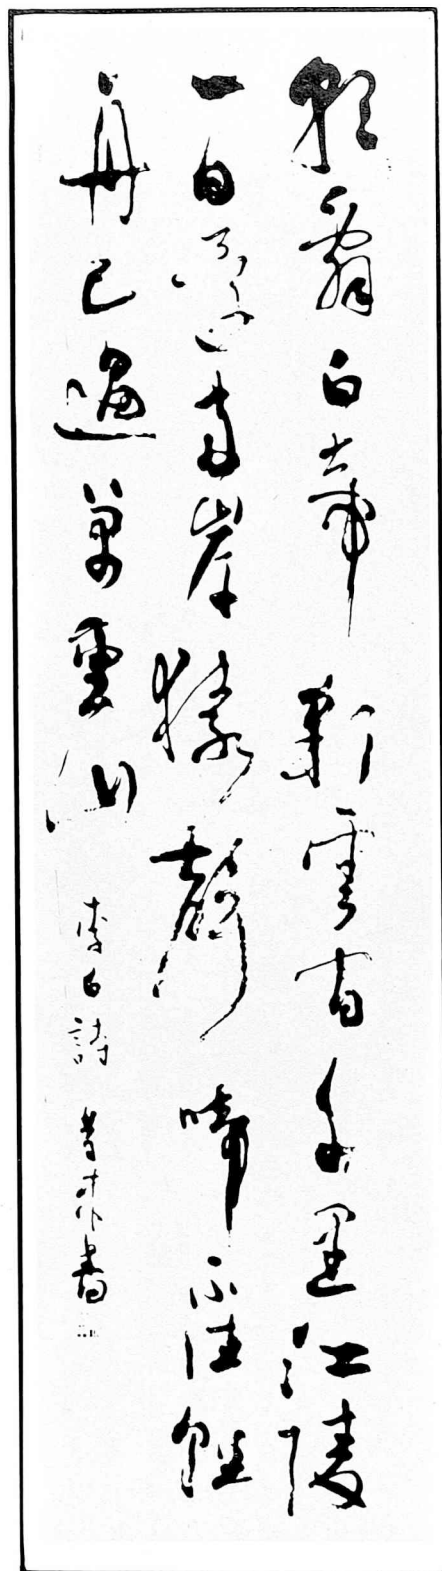 朝辭白帝彩雲間千里江陵
一日還兩岸猿聲啼不住輕
舟已過萬重山 李白詩 書